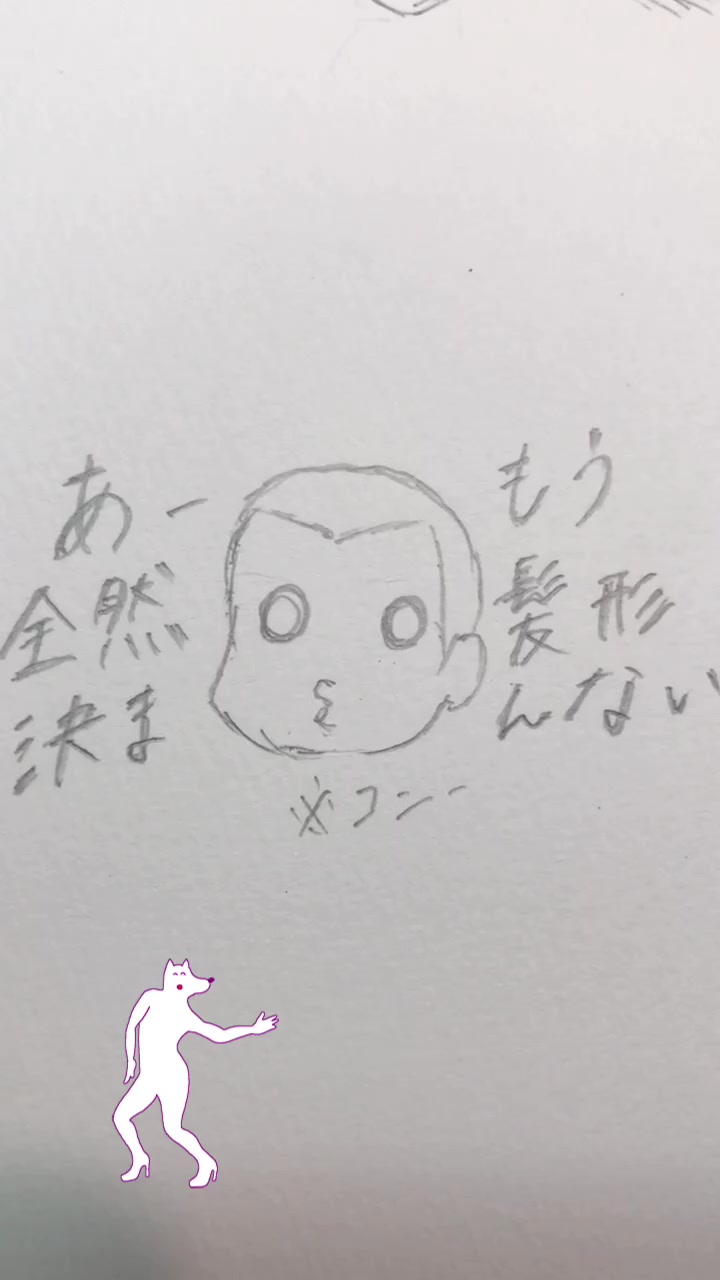 あー もう
全然 髪形
決ま んない
※コニー